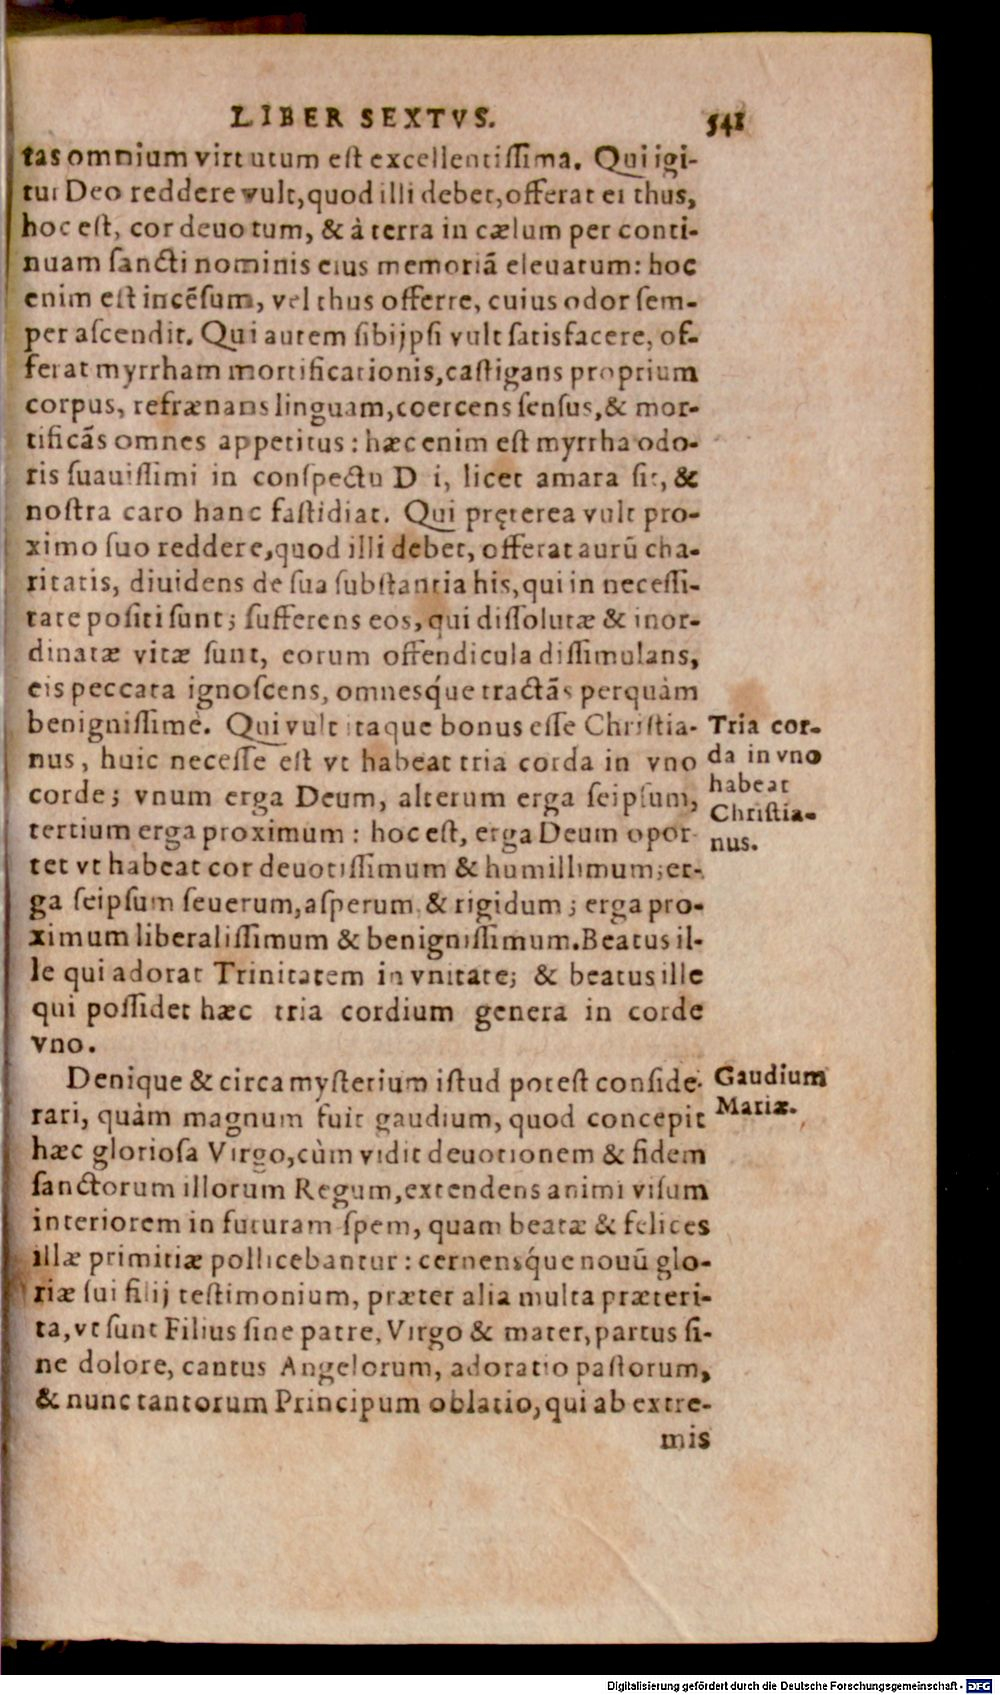 LIBER SEXTVS. 541
tas omnium virtutum eſt excellentiſſima. Qui igi-
tur Deo reddere vult, quod illi debet, offerat ei thus,
hoc eſt, cor deuotum, & à terra in cælum per conti-
nuam ſancti nominis eius memoriā eleuatum: hoc
enim eſt incēſum, vel thus offerre, cuius odor ſem-
per aſcendit. Qui autem ſibijpſi vult ſatisfacere, of-
ferat myrrham mortificationis, caſtigans proprium
corpus, refrænans linguam, coercens ſenſus, & mor-
tificās omnes appetitus: hæc enim eſt myrrha odo-
ris ſuauiſſimi in conſpectu D i, licet amara ſit, &
noſtra caro hanc faſtidiat. Qui pręterea vult pro-
ximo ſuo reddere, quod illi debet, offerat aurū cha-
ritatis, diuidens de ſua ſubſtantia his, qui in neceſſi-
tate poſiti ſunt; ſufferens eos, qui diſſolutæ & inor-
dinatæ vitæ ſunt, eorum offendicula diſſimulans,
eis peccata ignoſcens, omnesq́ue tractās perquàm
benigniſſimè. Qui vult itaque bonus eſſe Chriſtia-
nus, huic neceſſe eſt vt habeat tria corda in vno
corde; vnum erga Deum, alterum erga ſeipſum,
tertium erga proximum: hoc eſt, erga Deum opor
tet vt habeat cor deuotiſſimum & humillimum; er-
ga ſeipſum ſeuerum, aſperum, & rigidum; erga pro-
ximum liberaliſſimum & benigniſſimum. Beatus il-
le qui adorat Trinitatem in vnitate; & beatus ille
qui poſſidet hæc tria cordium genera in corde
vno.
Tria cor-
da in vno
habeat
Chriſtia-
nus.
Denique & circa myſterium iſtud poteſt conſide-
rari, quàm magnum fuit gaudium, quod concepit
hæc glorioſa Virgo, cùm vidit deuotionem & fidem
ſanctorum illorum Regum, extendens animi viſum
interiorem in futuram ſpem, quam beatæ & felices
illæ primitiæ pollicebantur: cernensq́ue nouū glo-
riæ ſui filij teſtimonium, præter alia multa præteri-
ta, vt ſunt Filius ſine patre, Virgo & mater, partus ſi-
ne dolore, cantus Angelorum, adoratio paſtorum,
& nunc tantorum Principum oblatio, qui ab extre-
mis
Gaudium
Mariæ.
Digitalisierung gefördert durch die Deutsche Forschungsgemeinschaft - DFG